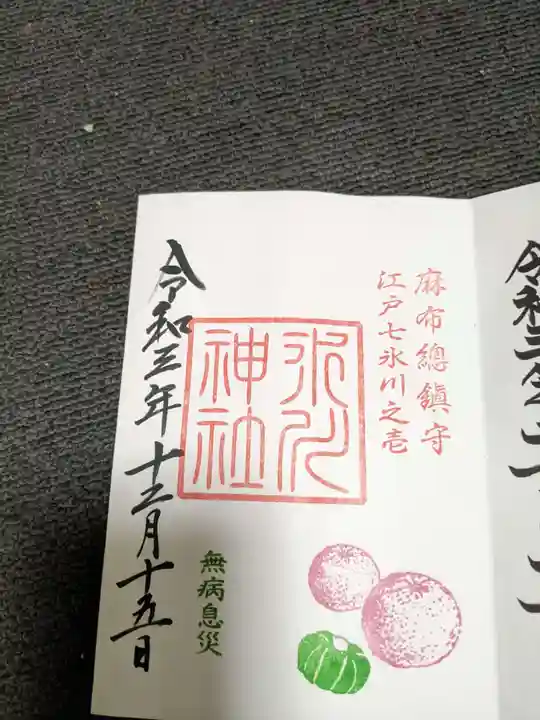 麻布總鎮守
江戸七氷川之壱
氷川神社
無病息災
令和三年十二月十五日
令和三年